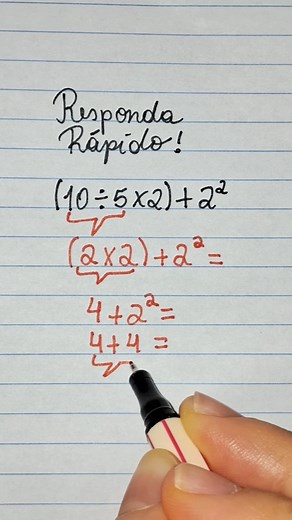 Responda
Rápido!
(10÷5×2)+2²
(2×2)+2²=
4+2²=
4+4=